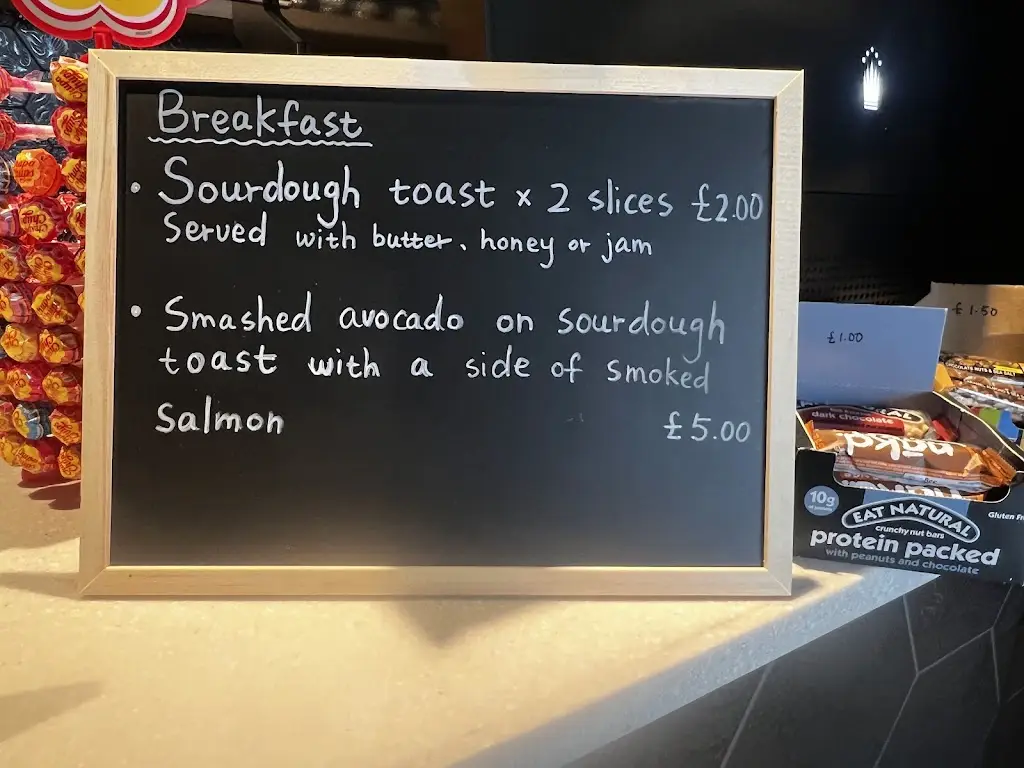 Breakfast
• Sourdough toast x 2 slices £2.00
Served with butter, honey or jam
• Smashed avocado on sourdough
toast with a side of smoked
Salmon £5.00
£1.00
£1.50
dark chocolate
nākd
10g
EAT NATURAL
crunchy nut bars
protein packed
with peanuts and chocolate